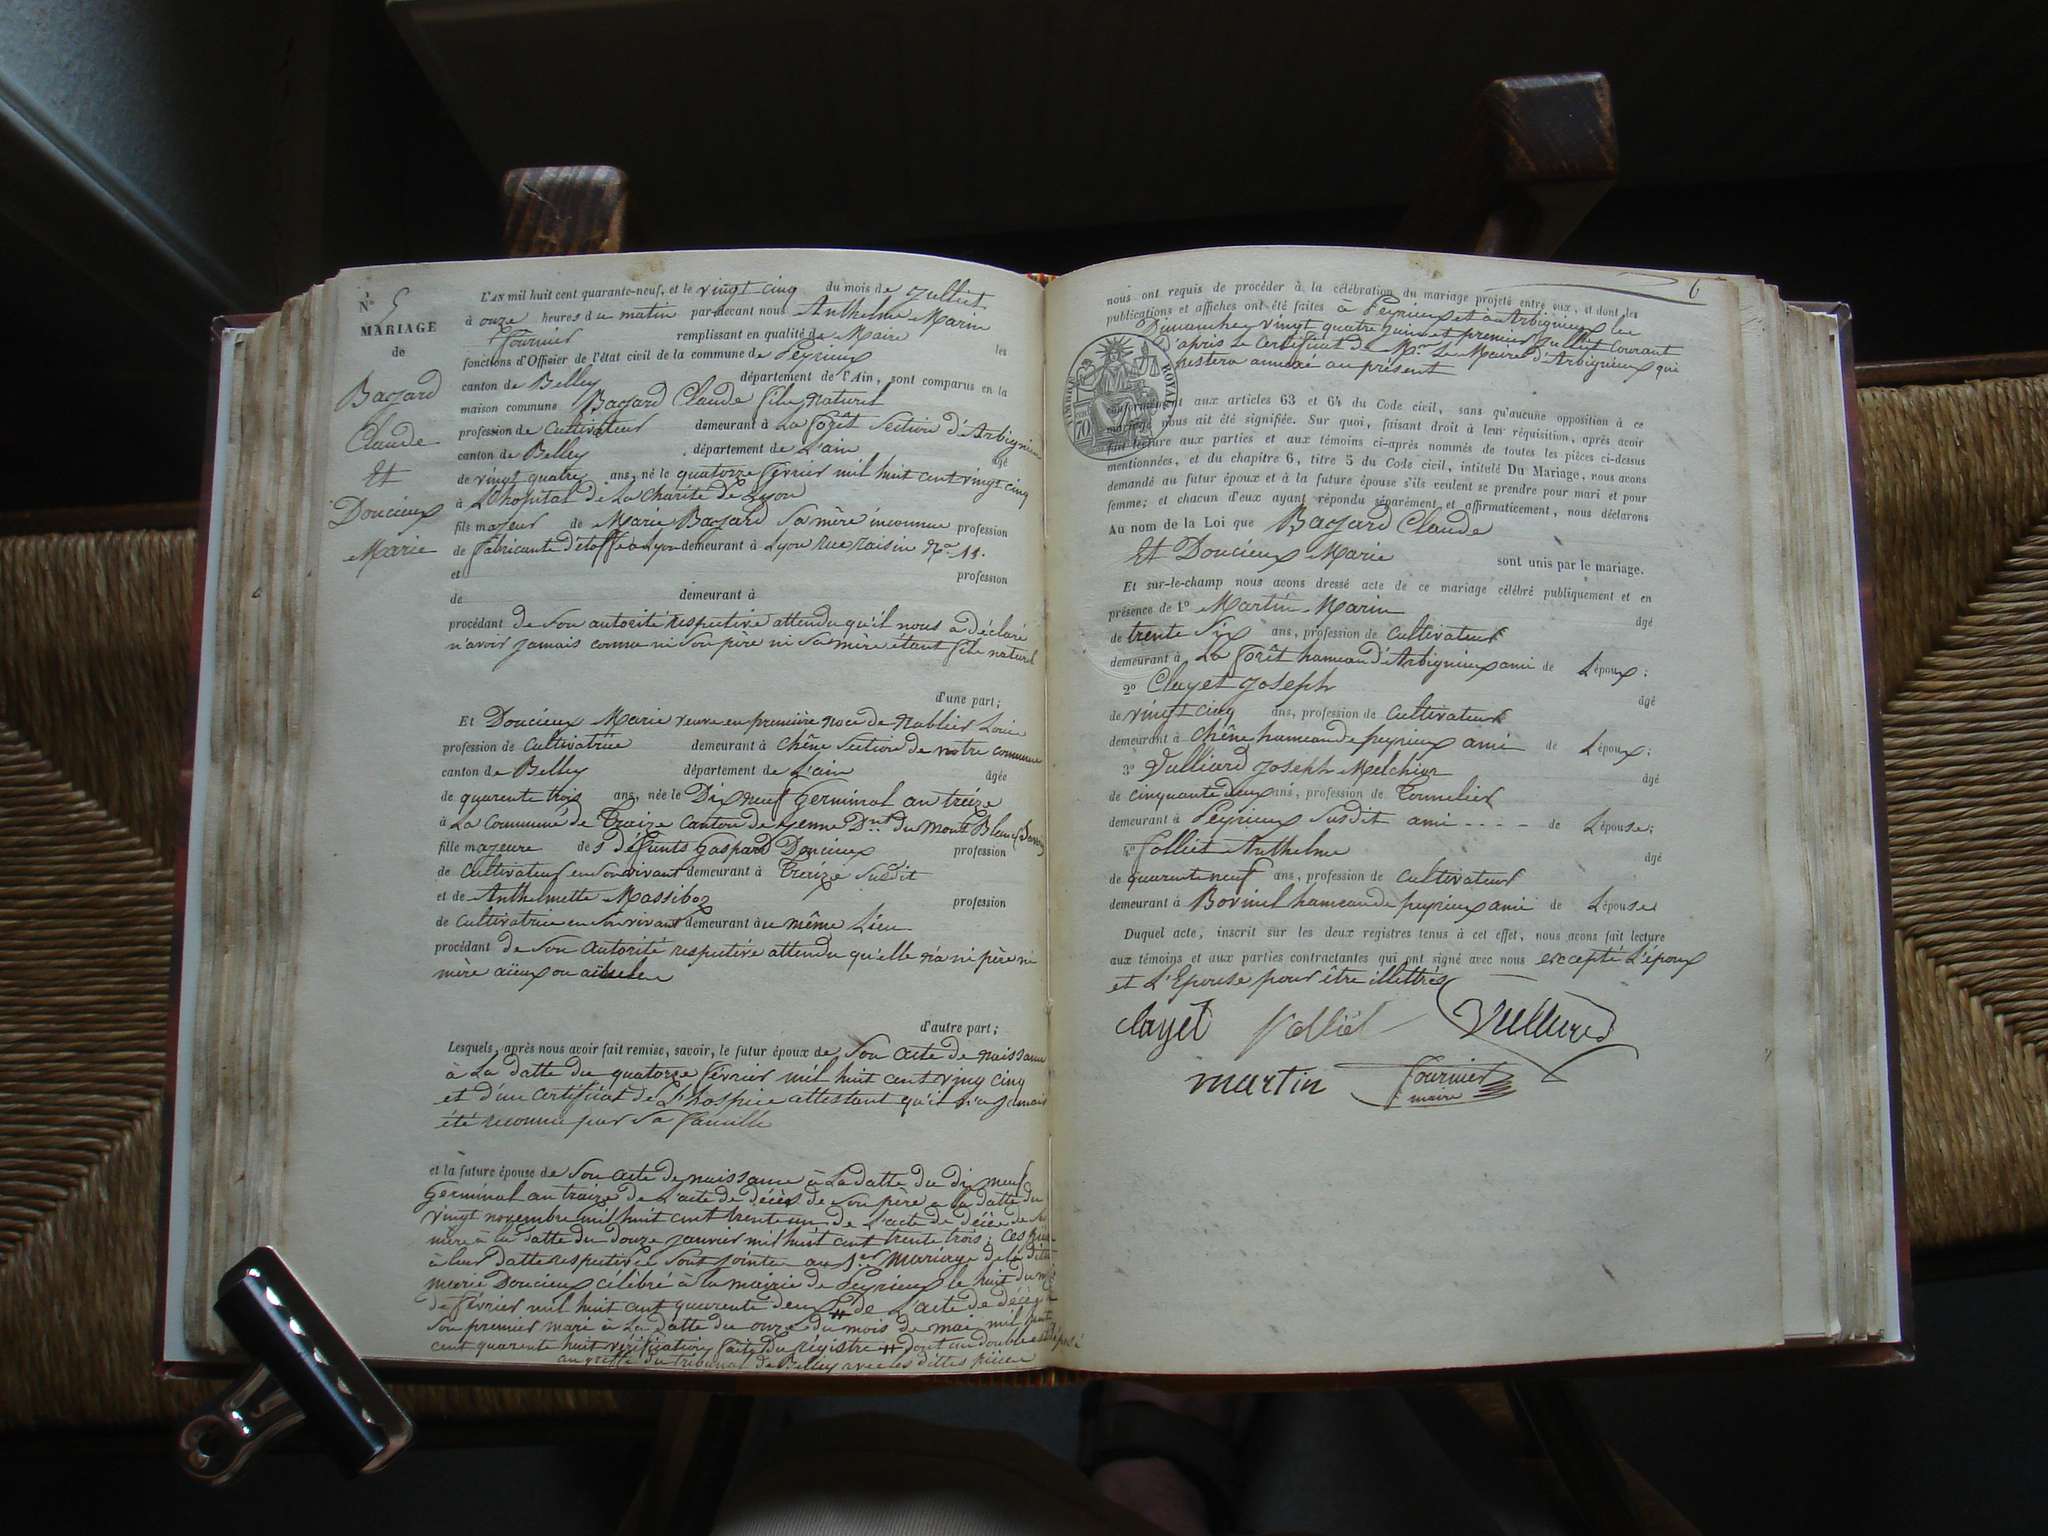 No 5
MARIAGE
de
Bagard
Claude
Et
Doucieux
Marie
L'AN mil huit cent quarante-neuf, et le vingt cinq du mois de Juillet
à onze heures du matin par-devant nous Anthelme Marin
Fournier remplissant en qualité de Maire les
fonctions d'Officier de l'état civil de la commune de Peyrieux
canton de Belley département de l'Ain, sont comparus en la
maison commune Bagard Claude fils naturel
profession de Cultivateur demeurant à La forêt Section d'Arbignieux
canton de Belley département de L'ain âgé
de vingt quatre ans, né le quatorze février mil huit cent vingt cinq
à L'hopital de La Charité de Lyon
fils majeur de Marie Bagard Sa mère inconnue profession
de fabricante d'étoffe à Lyon demeurant à Lyon rue raisin No 11.
et profession
de demeurant à
procédant de Son autorité respective attendu qu'il nous a déclaré
n'avoir jamais connu ni Son père ni Sa mère étant fils naturel
d'une part;
Et Doucieux Marie veuve en première noce de Nablier Louis
profession de Cultivatrice demeurant à Chêne Section de notre commune
canton de Belley département de L'ain âgée
de quarente trois ans, née le Dix neuf Germinal an treize
à La Commune de Traize Canton de yenne Dnt du Mont Blanc
fille majeure de s défunts Gaspard Doucieux profession
de Cultivateur en Son vivant demeurant à Treize Susdit
et de Anthelmette Massiboz profession
de Cultivatrice en Son vivant demeurant à u même Lieu
procédant de Son autorité respective attendu qu'elle n'a ni père ni
mère aïeux ou aïeules
d'autre part;
Lesquels, après nous avoir fait remise, savoir, le futur époux de Son acte de naissance
à La datte du quatorze février mil huit cent vingt cinq
et d'un Certificat de L'hospice attestant qu'il n'a Jamais
été reconnu par Sa famille
et la future épouse de Son acte de naissance à La datte du dix neuf
Germinal an traize de L'acte de décès de Son père a la datte du
vingt novembre mil huit cent trente un de L'acte de décès de Sa
mère à la datte du Douze janvier mil huit cent trente trois; Ces
à leur datte respective Sont jointe au 1er Mariage de la ditte
marie Doucieux célébré à la mairie de Peyrieux le huit du
de février mil huit cent quarente deux de L'acte de décès
Son premier mari à La datte du onze du mois de mai mil huit
cent quarente huit vérification faite du régistre dont un double est déposé
au greffe du tribunal de Belley avec les dittes pièces
6
nous ont requis de procéder à la célébration du mariage projeté entre eux, et dont les
publications et affiches ont été faites à Peyrieux et à Arbignieux les
Dimanches vingt quatre Juin et premier Juillet Courant
d'après Le Certificat de Mr Le Maire d'Arbignieux qui
restera annexé au présent
TIMBRE ROYAL
70
conformément aux articles 63 et 64 du Code civil, sans qu'aucune opposition à ce
mariage nous ait été signifiée. Sur quoi, faisant droit à leur réquisition, après avoir
fait lecture aux parties et aux témoins ci-après nommés de toutes les pièces ci-dessus
mentionnées, et du chapitre 6, titre 5 du Code civil, intitulé Du Mariage, nous avons
demandé au futur époux et à la future épouse s'ils veulent se prendre pour mari et pour
femme; et chacun d'eux ayant répondu séparément et affirmativement, nous déclarons
Au nom de la Loi que Bagard Claude
Et Doucieux Marie sont unis par le mariage.
Et sur-le-champ nous avons dressé acte de ce mariage célébré publiquement et en
présence de 1o Martin Marin âgé
de trente Six ans, profession de Cultivateur
demeurant à La forêt hameau d'Arbignieux ami de L'époux;
2o Clayet Joseph âgé
de vingt cinq ans, profession de Cultivateur
demeurant à Chêne hameau de peyrieux ami de L'époux;
3o Vulliard Joseph Melchior âgé
de cinquante deux ans, profession de Tonnelier
demeurant à Peyrieux Susdit ami de L'épouse;
4o Folliet Anthelme âgé
de quarente neuf ans, profession de Cultivateur
demeurant à Borninel hameau de peyrieux ami de L'épouse
Duquel acte, inscrit sur les deux registres tenus à cet effet, nous avons fait lecture
aux témoins et aux parties contractantes qui ont signé avec nous excepté L'époux
et L'Epouse pour être illettrés
Clayet folliet Vulliard
martin Fournier
maire